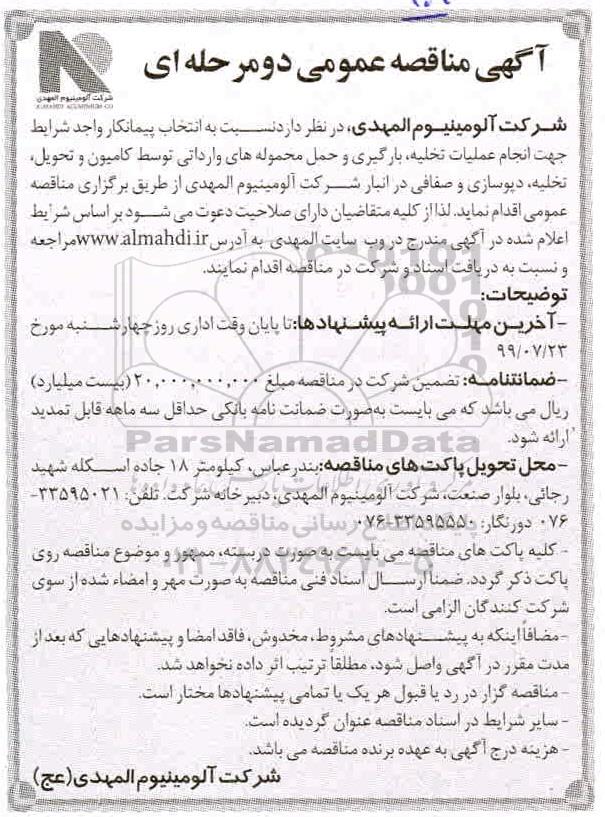 آگهی مناقصه عمومی دو مرحله ای
شرکت آلومینیوم المهدی
ALMAHDI ALUMINIUM CO
شرکت آلومینیوم المهدی، در نظر دارد نسبت به انتخاب پیمانکار واجد شرایط
جهت انجام عملیات تخلیه، بارگیری و حمل محموله های وارداتی توسط کامیون و تحویل،
تخلیه، دپوسازی و صفافی در انبار شرکت آلومینیوم المهدی از طریق برگزاری مناقصه
عمومی اقدام نماید. لذا از کلیه متقاضیان دارای صلاحیت دعوت می شود بر اساس شرایط
اعلام شده در آگهی مندرج در وب سایت المهدی به آدرس www.almahdi.ir مراجعه
و نسبت به دریافت اسناد و شرکت در مناقصه اقدام نمایند.
توضیحات:
-آخرین مهلت ارائه پیشنهادها: تا پایان وقت اداری روز چهارشنبه مورخ
۹۹/۰۷/۲۳
-ضمانتنامه: تضمین شرکت در مناقصه مبلغ ۲۰,۰۰۰,۰۰۰,۰۰۰ (بیست میلیارد)
ریال می باشد که می بایست به‌صورت ضمانت نامه بانکی حداقل سه ماهه قابل تمدید
ارائه شود.
-محل تحویل پاکت های مناقصه: بندرعباس، کیلومتر ۱۸ جاده اسکله شهید
رجائی، بلوار صنعت، شرکت آلومینیوم المهدی، دبیرخانه شرکت. تلفن: ۳۳۵۹۵۰۲۱-
۰۷۶ دورنگار: ۳۳۵۹۵۵۵۰-۰۷۶
- کلیه پاکت های مناقصه می بایست به صورت دربسته، ممهور و موضوع مناقصه روی
پاکت ذکر گردد. ضمناً ارسال اسناد فنی مناقصه به صورت مهر و امضاء شده از سوی
شرکت کنندگان الزامی است.
-مضافاً اینکه به پیشنهادهای مشروط، مخدوش، فاقد امضا و پیشنهادهایی که بعد از
مدت مقرر در آگهی واصل شود، مطلقاً ترتیب اثر داده نخواهد شد.
- مناقصه گزار در رد یا قبول هر یک یا تمامی پیشنهادها مختار است.
- سایر شرایط در اسناد مناقصه عنوان گردیده است.
- هزینه درج آگهی به عهده برنده مناقصه می باشد.
شرکت آلومینیوم المهدی (عج)
ParsNamadData
پایگاه اطلاع رسانی مناقصه و مزایده